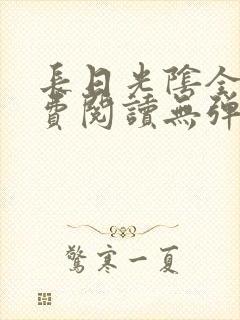 長日光陰全
費閱讀無彈
驚寒一夏